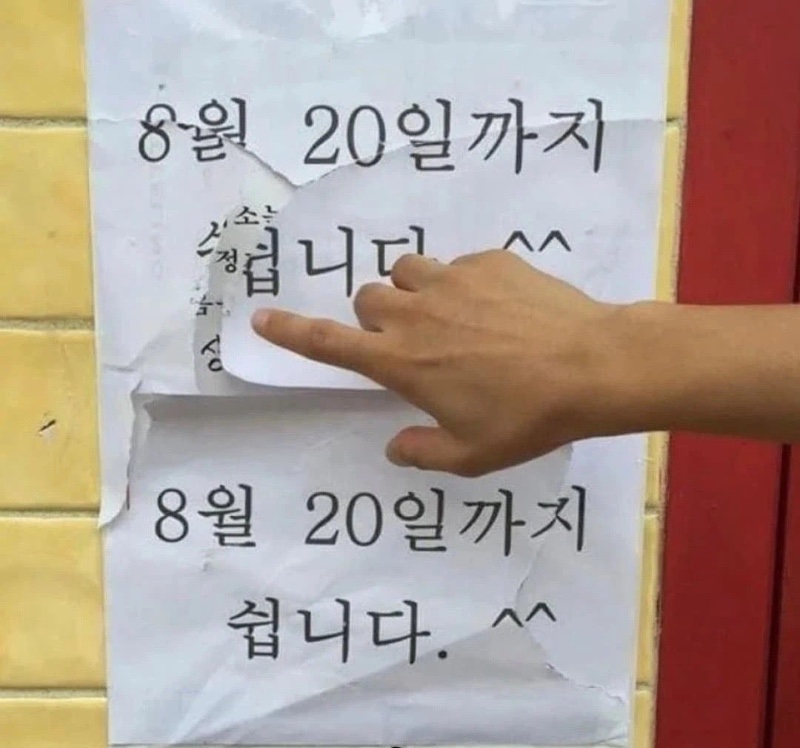 8월 20일까지
쉽니다 ^^
8월 20일까지
쉽니다. ^^